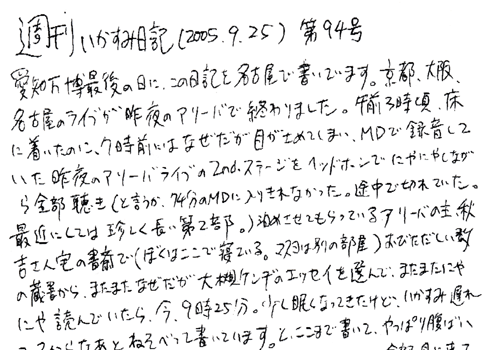 週刊いかすみ日記(2005.9.25) 第94号
愛知万博最後の日に、この日記を名古屋で書いています。京都、大阪、
名古屋のライブが昨夜のアリーバで終わりました。午前3時頃、床
に着いたのに、7時前にはなぜだか目がさめてしまい、MDで録音して
いた昨夜のアリーバライブの2nd.ステージをヘッドホンでにやにやしなが
ら全部聴き(と言うか、74分のMDに入りきれなかった。途中で切れていた。
最近にしては珍しく長い第2部。)泊めさせてもらっているアリーバの主、秋
吉さん宅の書斎で(ぼくはここで寝ている。は別の部屋)おびただしい数
の蔵書から、またまたなぜだが大槻ケンヂのエッセイを選んで、またまたにや
にや読んでいたら、今、9時25分。少し眠くなってきたけど、いかすみ遅れ
なあとねそべって書いています。と、ここまで書いて、やっぱり腹ばい